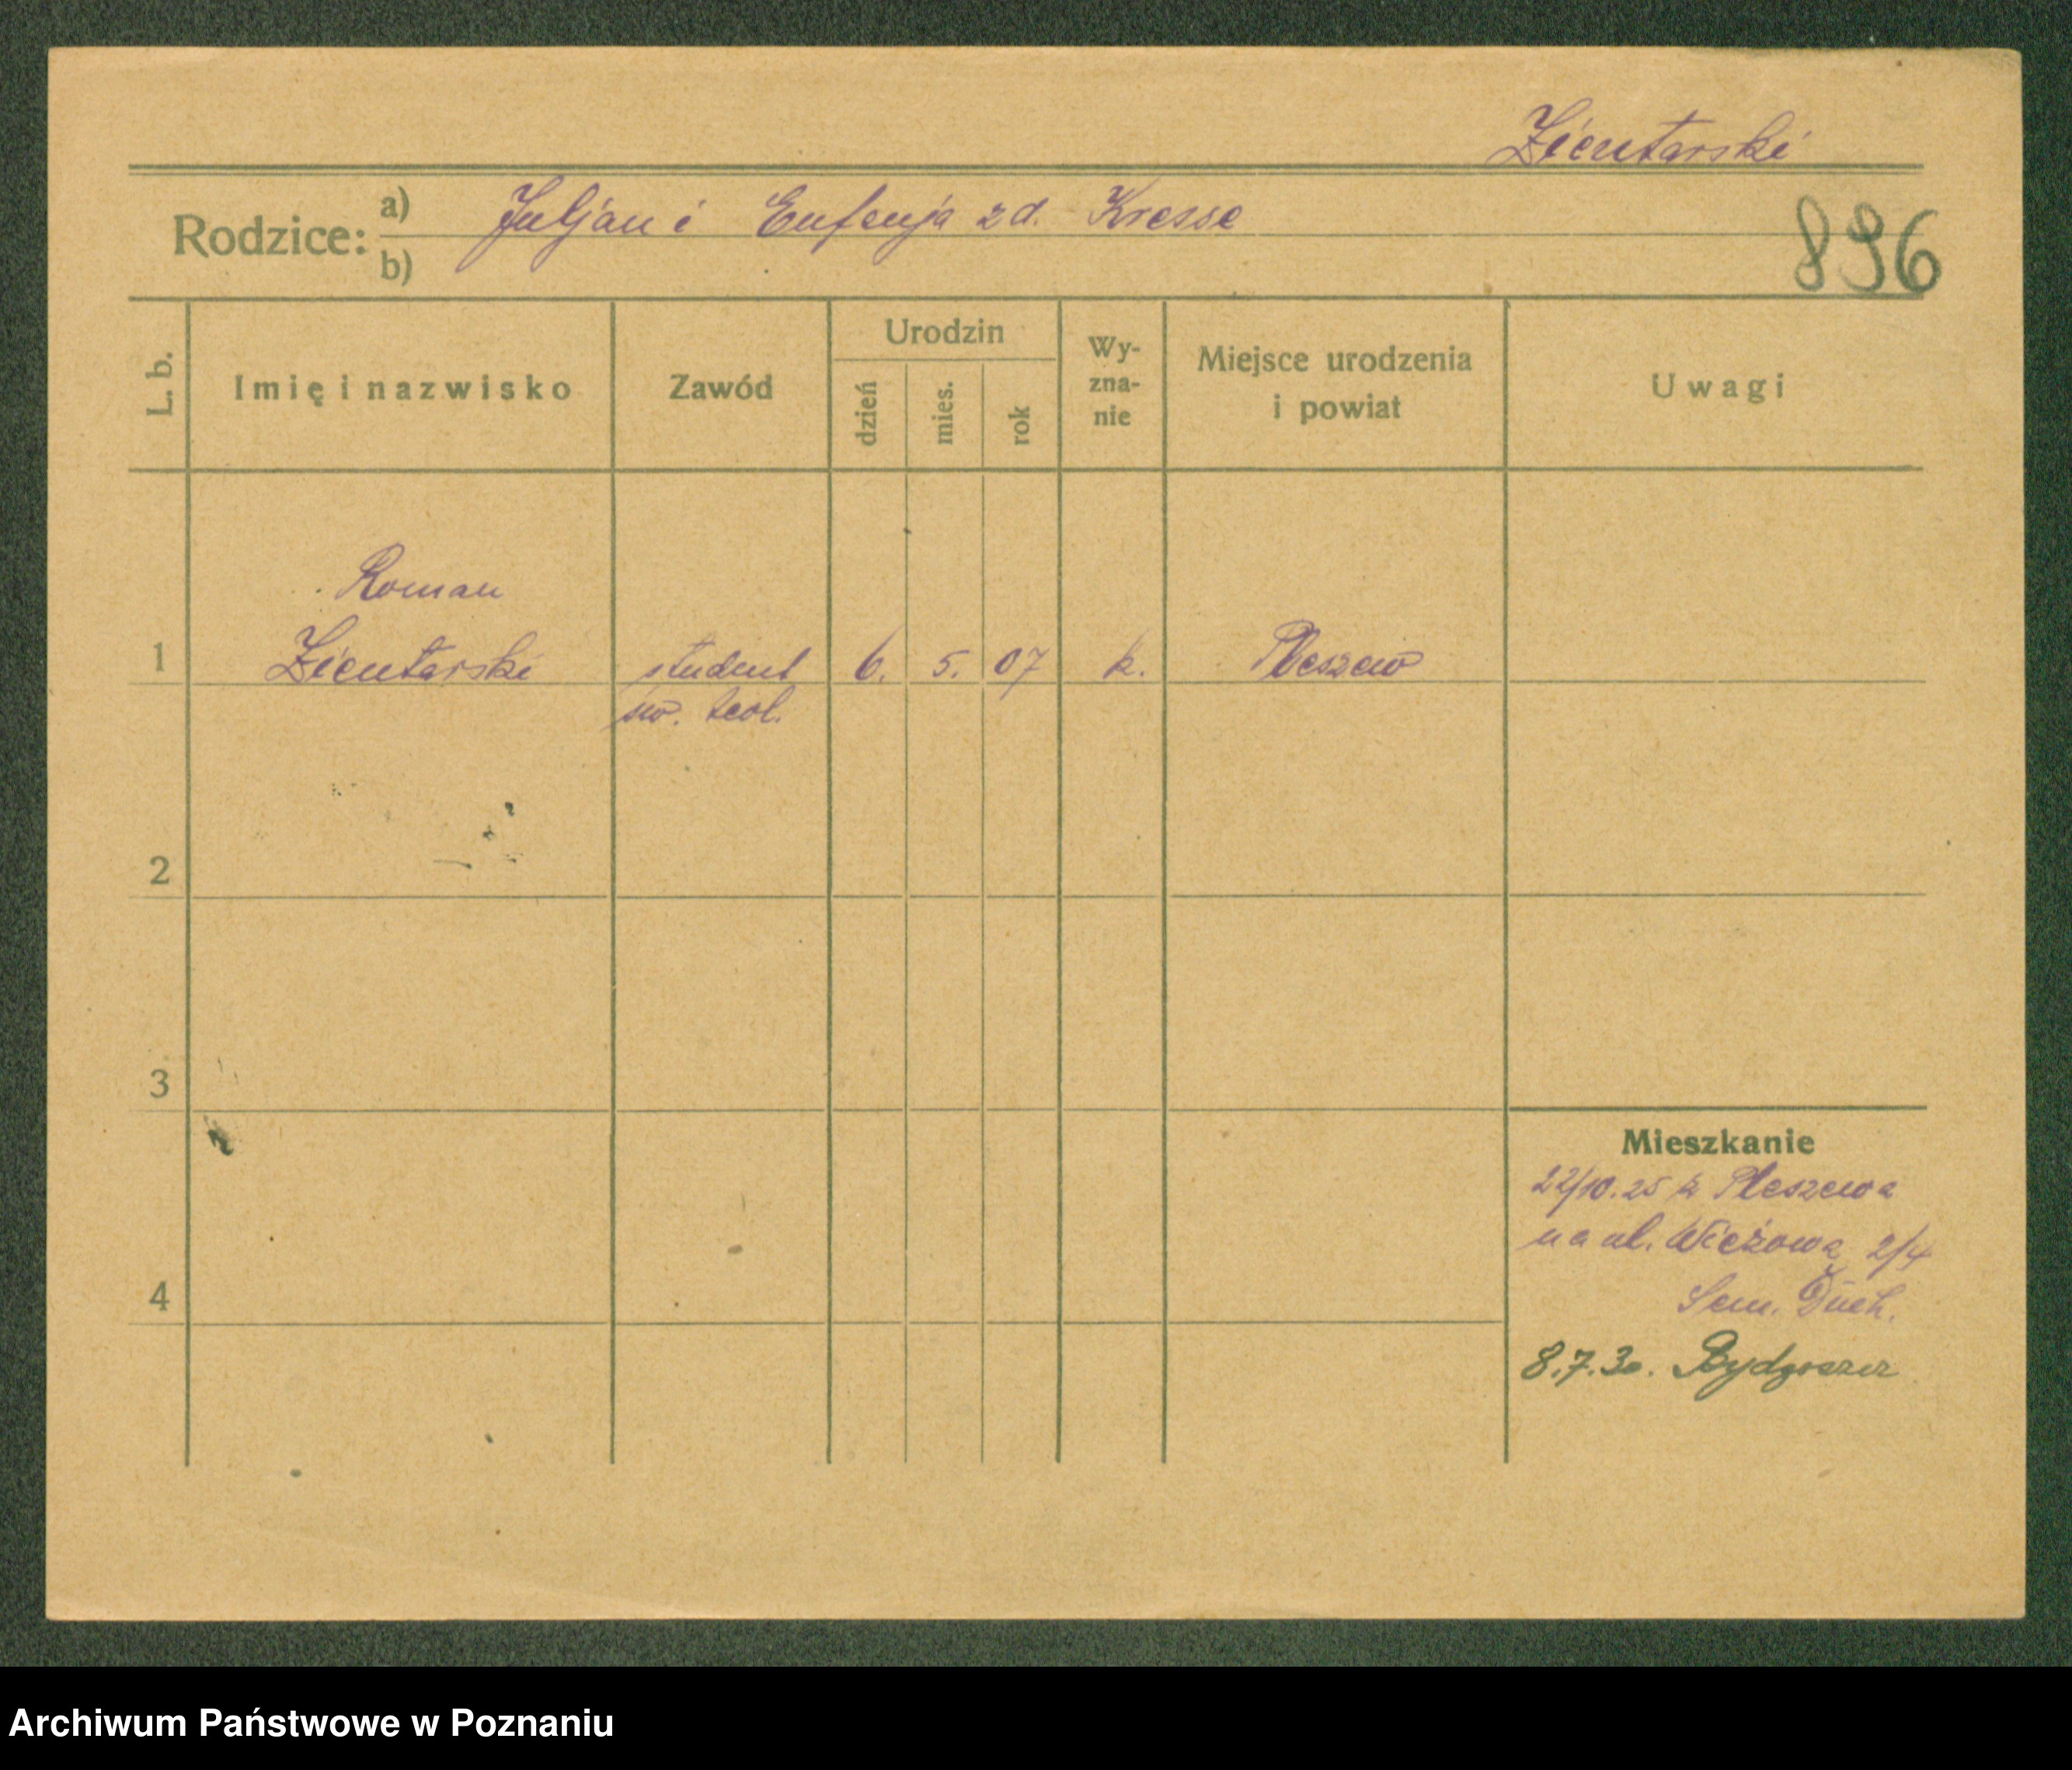 Zientarski
Rodzice: a) Juljan i Eufenja zd. Kresse
b)
896
L. b.
Imię i nazwisko
Zawód
Urodzin
dzień
mies.
rok
Wy-
zna-
nie
Miejsce urodzenia
i powiat
Uwagi
Roman
1 Zientarski student 6. 5. 07 k. Pleszew
św. teol.
2
3
4
Mieszkanie
22/10.25 z Pleszewa
na ul. Wieżowa 2/4
Sem. Duch.
8.7.30. Bydgoszcz
Archiwum Państwowe w Poznaniu